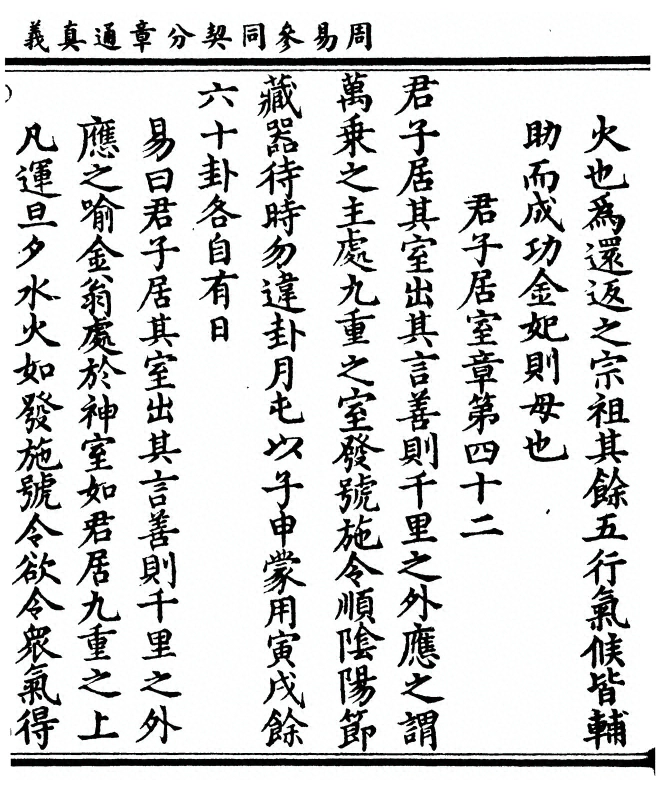 周易參同契分章通真義
火也爲還返之宗祖其餘五行氣候皆輔
助而成功金妃則母也
君子居室章第四十二
君子居其室出其言善則千里之外應之謂
萬乘之主處九重之室發號施令順陰陽節
藏器待時勿違卦月屯以子申蒙用寅戌餘
六十卦各自有日
易曰君子居其室出其言善則千里之外
應之喻金翁處於神室如君居九重之上
凡運旦夕水火如發施號令欲令眾氣得